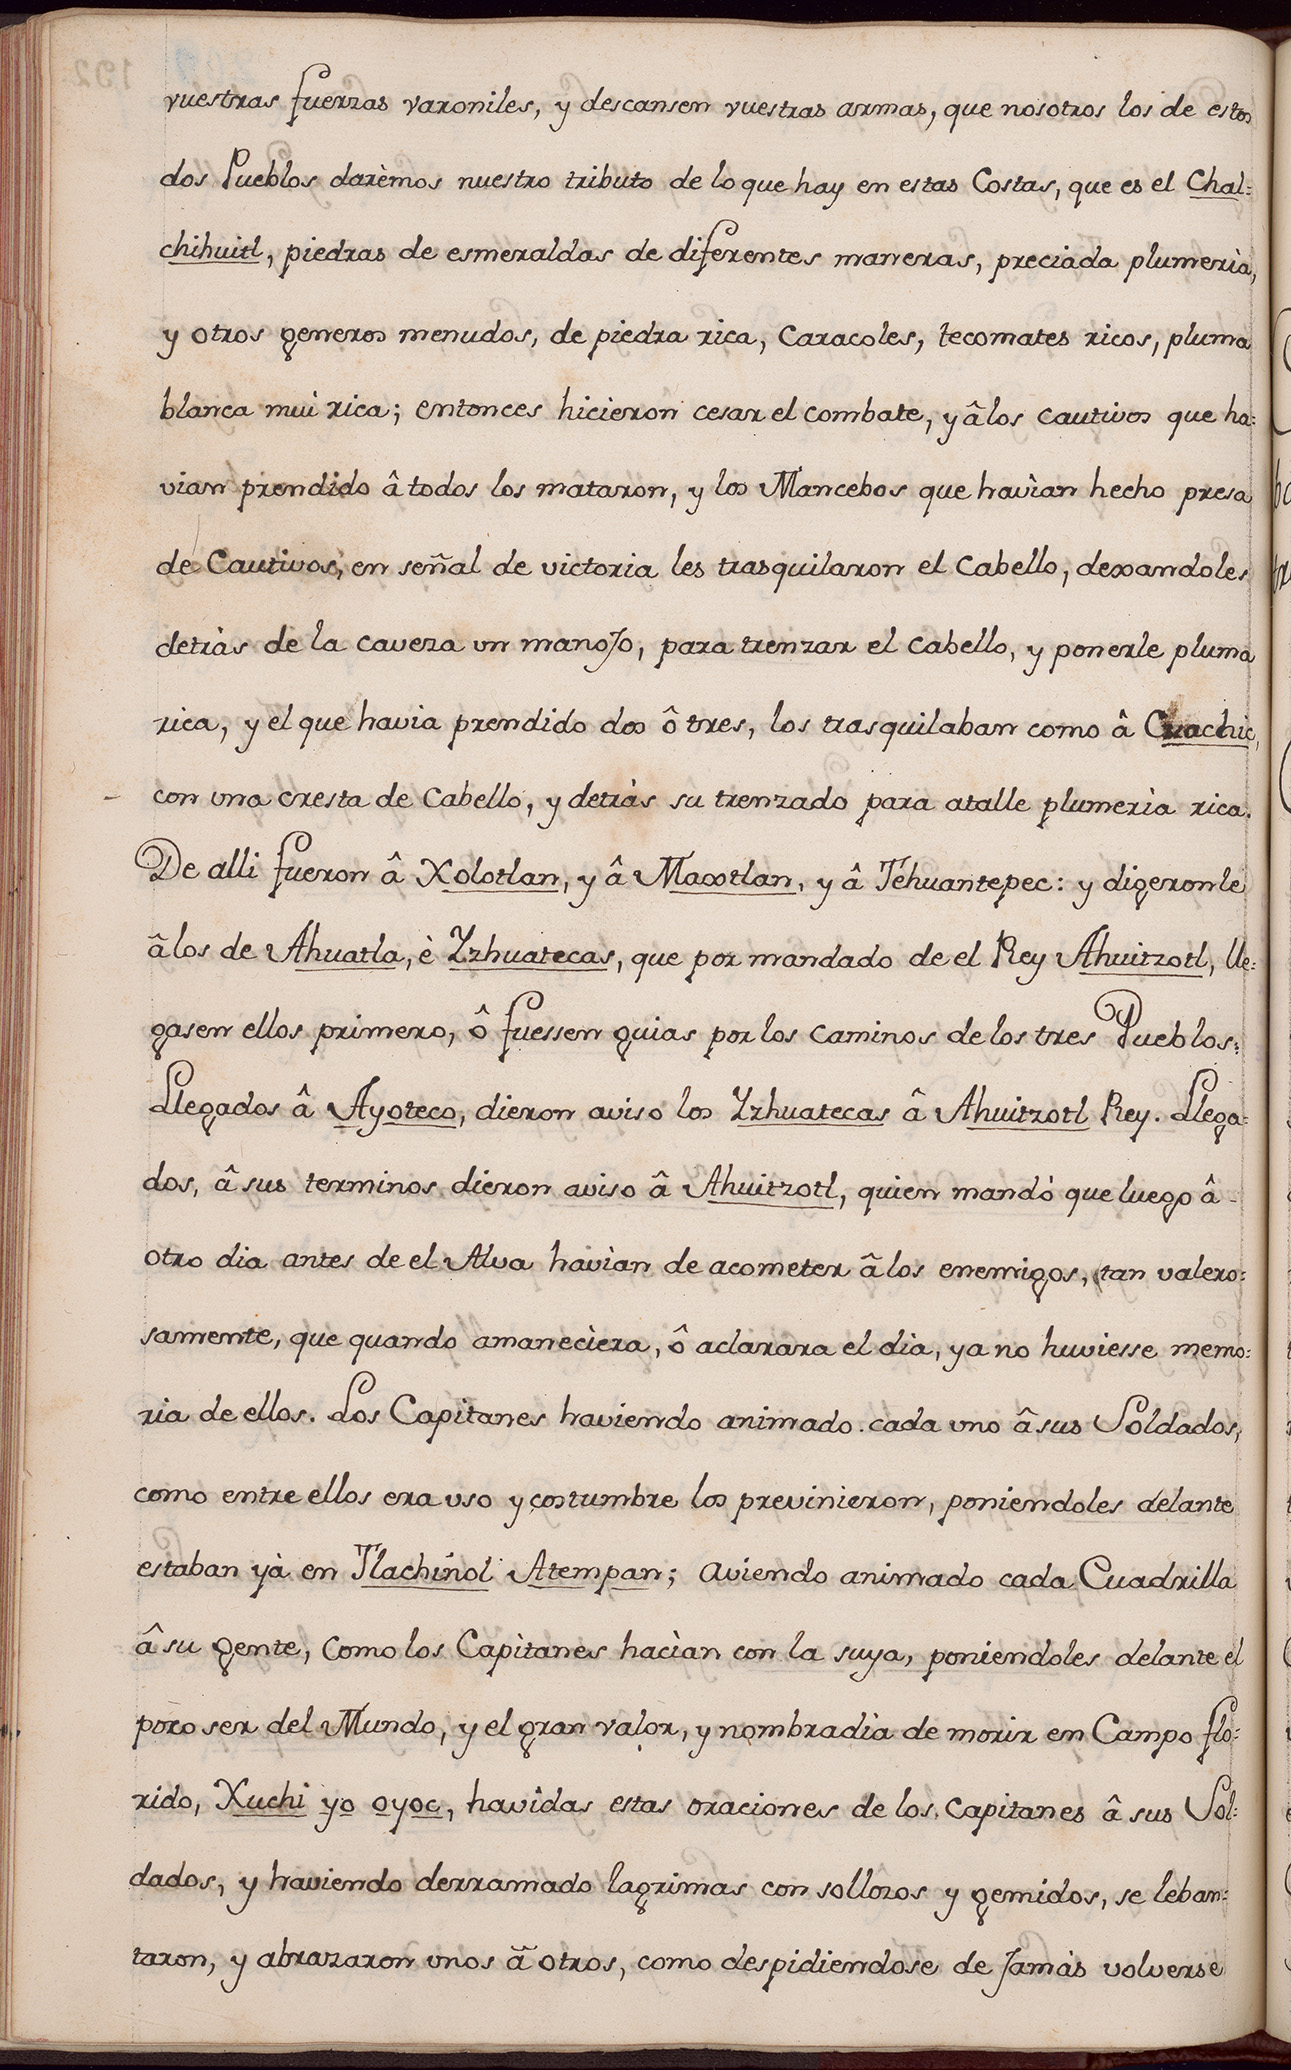 vuestras fuerzas varoniles, y descansen vuestras armas, que nosotros los de estos
dos Pueblos darèmos nuestro tributo de lo que hay en estas Costas, que es el Chal=
chihuitl, piedras de esmeraldas de diferentes maneras, preciada plumerìa,
y otros generos menudos, de piedra rica, Caracoles, tecomates ricos, pluma
blanca mui rica; entonces hicieron cesar el combate, y â los cautivos que ha=
vian prendido â todos los mataron, y los Mancebos que havìan hecho presa
de Cautivos, en señal de victoria les trasquilaron el Cabello, dexandoles
detràs de la caveza un manojo, para trenzar el Cabello, y ponerle pluma
rica, y el que havia prendido dos ô tres, los trasquilaban como â Cuachic,
con una cresta de Cabello, y detràs su trenzado para atalle plumerìa rica.
De alli fueron â Xolotlan, y â Maxtlan, y â Tehuantepec: y digeronle
â los de Ahuatla, è Yzhuatecas, que por mandado de el Rey Ahuitzotl, lle=
gasen ellos primero, ô fuessen guias por los caminos de los tres Pueblos:
Llegados â Ayoteco, dieron aviso los Yzhuatecas â Ahuitzotl Rey. Llega=
dos, â sus terminos dieron aviso â Ahuitzotl, quien mandó que luego â
otro dia antes de el Alva havìan de acometer â los enemigos, tan valero=
samente, que quando amanecìera, ô aclarara el dia, ya no huviesse memo=
ria de ellos. Los Capitanes haviendo animado cada uno â sus Soldados,
como entre ellos era uso y costumbre los previnieron, poniendoles delante
estaban yà en Tlachiñol Atempan; aviendo animado cada Cuadrilla
â su gente, como los Capìtanes hacìan con la suya, poniendoles delante el
poco ser del Mundo, y el gran valor, y nombradìa de morir en Campo flo=
rido, Xuchi yo oyoc, havidas estas oraciones de los Capitanes â sus Sol=
dados, y haviendo derramado lagrimas con sollozos y gemidos, se leban=
taron, y abrazaron unos â otros, como despidiendose de Jamàs volverse